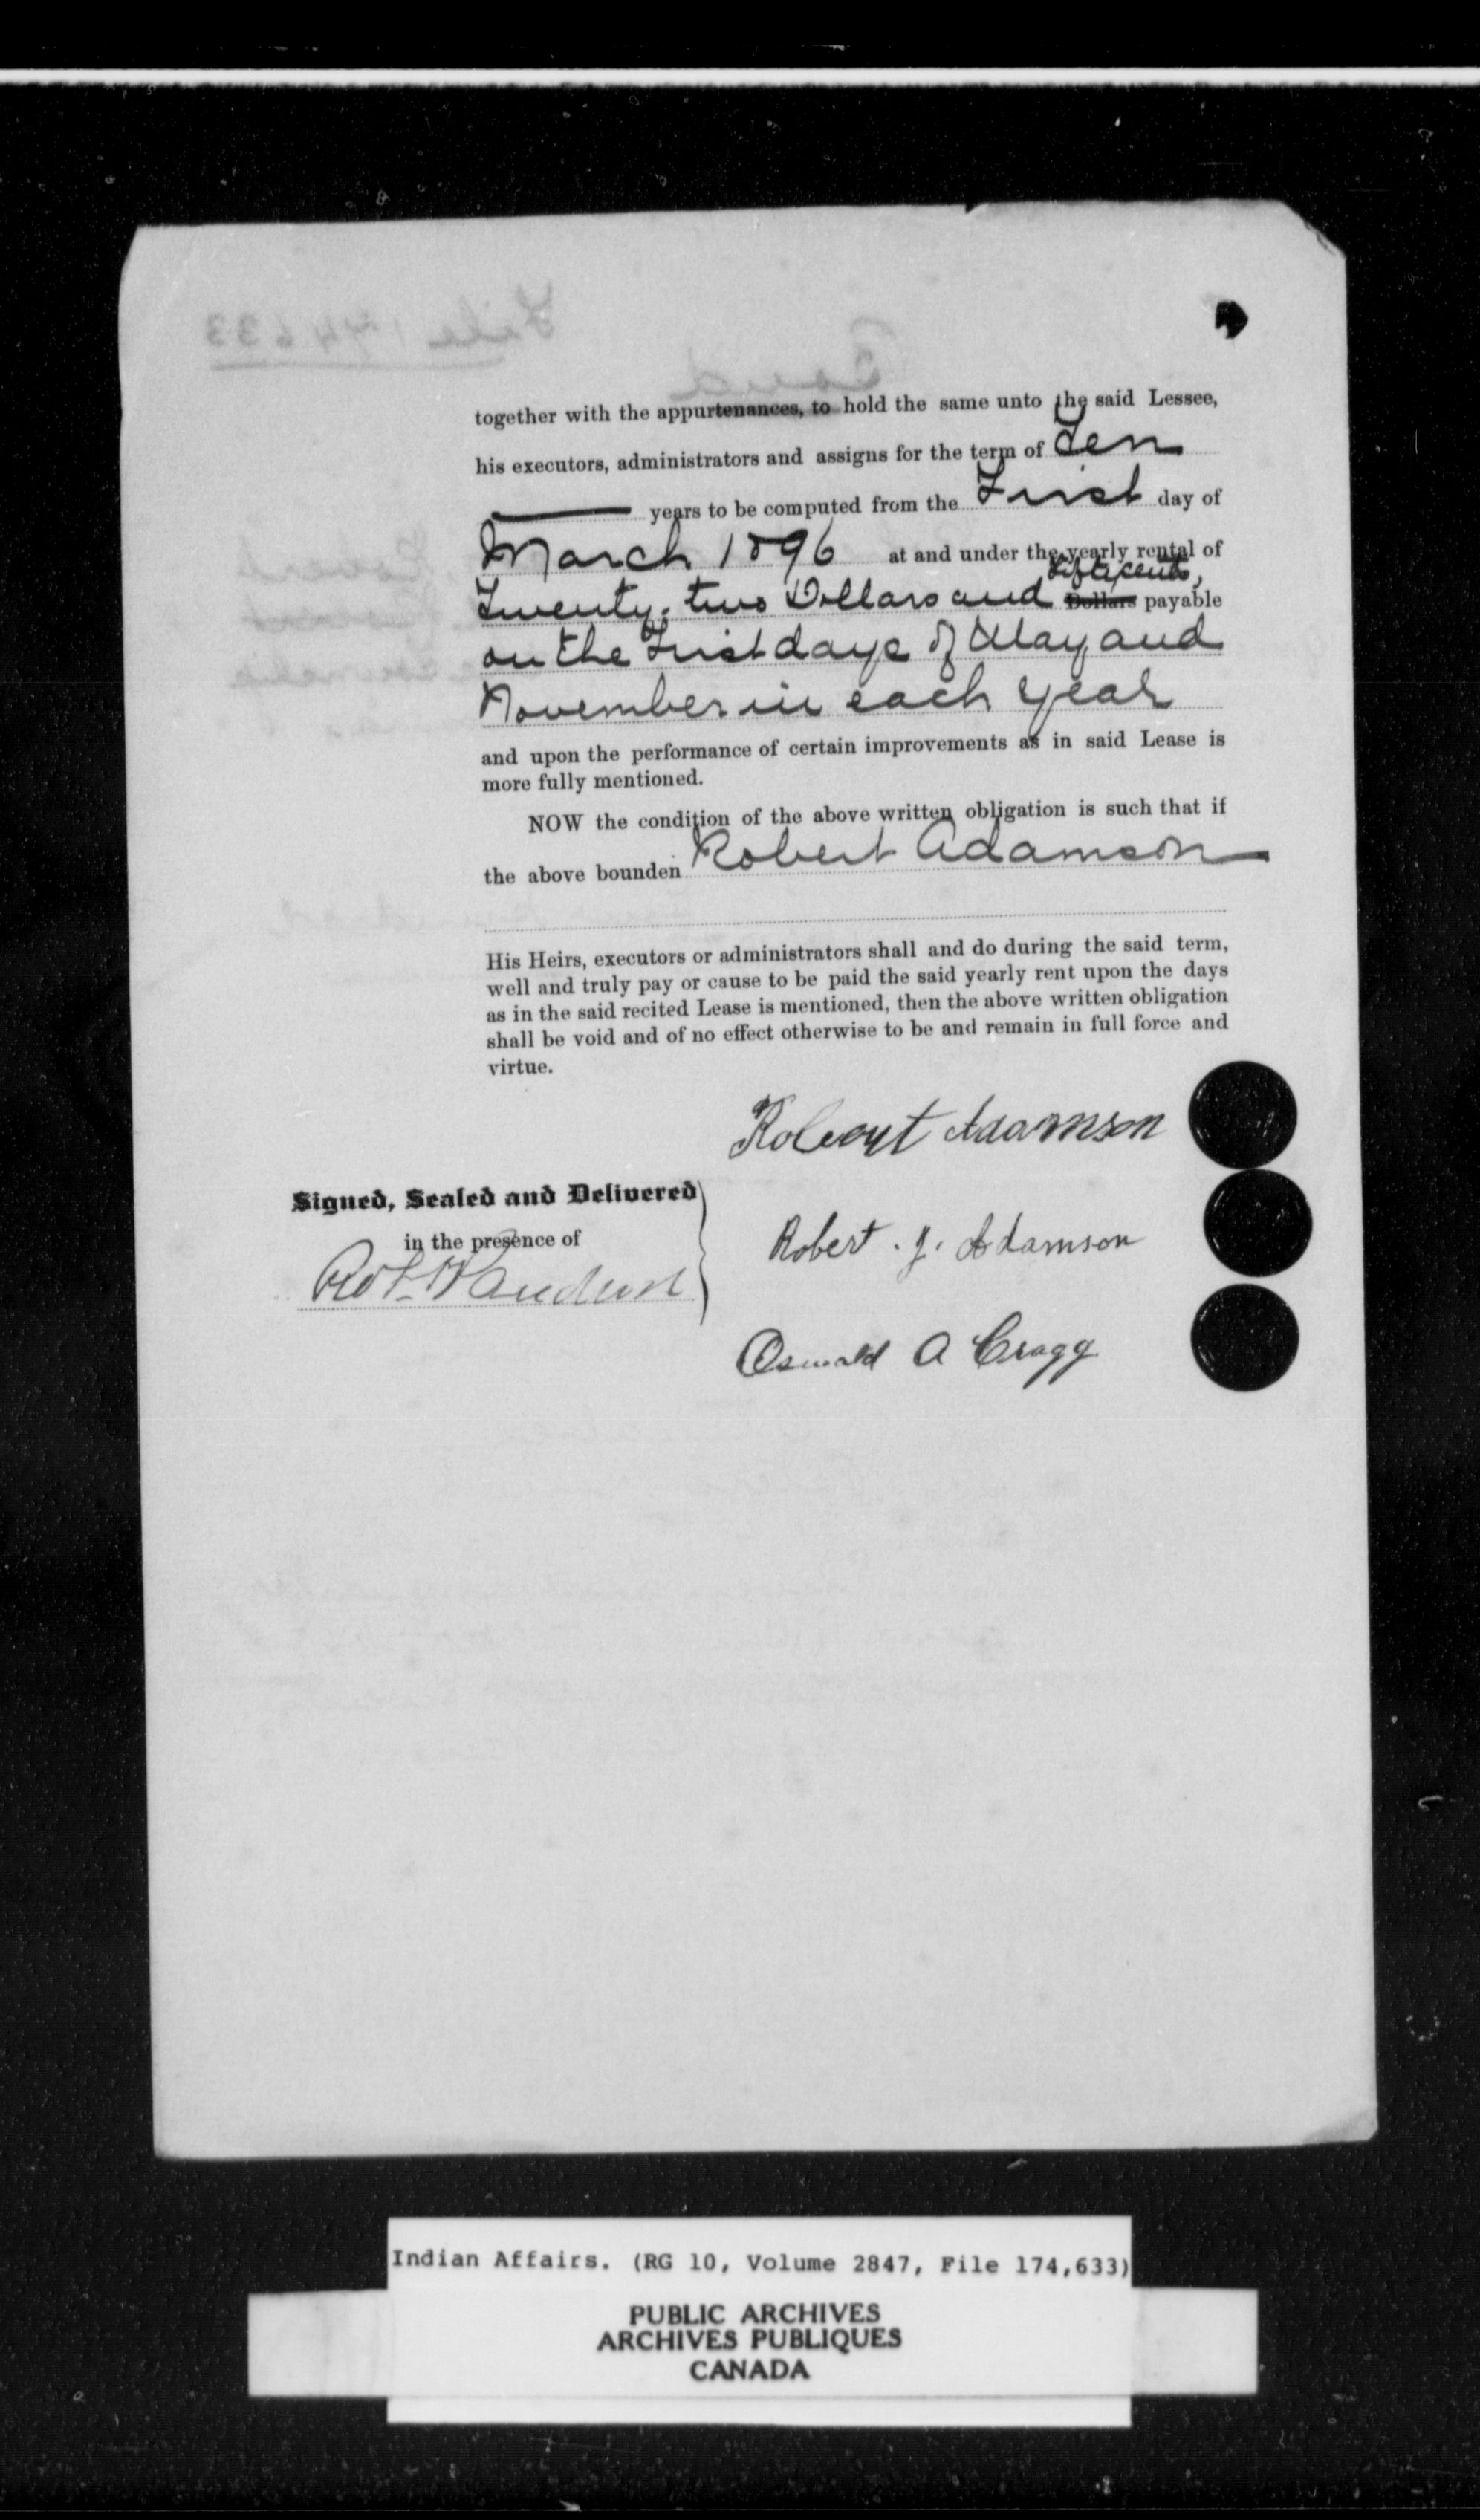 together with the appurtenances, to hold the same unto the said Lessee,
his executors, administrators and assigns for the term of Ten
years to be computed from the First day of
March 1896 at and under the yearly rental of
fifty cents,
Twenty-two Dollars and Dollars payable
on the First days of May and
November in each year
and upon the performance of certain improvements as in said Lease is
more fully mentioned.
NOW the condition of the above written obligation is such that if
the above bounden Robert Adamson
His Heirs, executors or administrators shall and do during the said term,
well and truly pay or cause to be paid the said yearly rent upon the days
as in the said recited Lease is mentioned, then the above written obligation
shall be void and of no effect otherwise to be and remain in full force and
virtue.
Robert Adamson
Signed, Sealed and Delivered
in the presence of
Robert . J. Adamson
Oswald A Cragg
Indian Affairs. (RG 10, Volume 2847, File 174,633)
PUBLIC ARCHIVES
ARCHIVES PUBLIQUES
CANADA